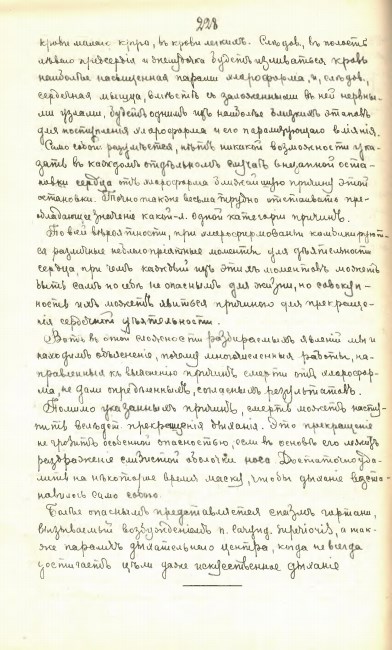 228
крови малаго круга, въ крови легкихъ. Слѣдов., въ полость
лѣваго предсердія и желудочка будетъ изливаться кровь
наиболѣе насыщенная парами хлороформа, и, слѣдов.,
сердечная мышца, вмѣстѣ съ заложенными въ ней нервны-
ми узлами, будетъ однимъ изъ наиболѣе близкихъ этаповъ
для поступленія хлороформа и его парализующаго вліянія.
Само собой разумѣется, нѣтъ никакой возможности ука-
зать въ каждомъ отдѣльномъ случаѣ внезапной оста-
новки сердца отъ хлороформа ближайшую причину этой
остановки. Точно также весьма трудно отстаивать пре-
обладающее значеніе какой-л. одной категоріи причинъ.
По всей вѣроятности, при хлороформованіи комбинируют-
ся различные неблагопріятные моменты для дѣятельности
сердца, при чемъ каждый изъ этихъ моментовъ можетъ
быть самъ по себѣ не опаснымъ для жизни, но совокуп-
ность ихъ можетъ явиться причиною для прекраще-
нія сердечной дѣятельности.
Вотъ въ этой сложности разбираемыхъ явленій мы и
находимъ объясненіе, почему многочисленныя работы, на-
правленныя къ выясненію причинъ смерти отъ хлорофор-
ма, не дали опредѣленныхъ, согласныхъ результатовъ.
Помимо указанныхъ причинъ, смерть можетъ насту-
пить вслѣдст. прекращенія дыханія. Это прекращеніе
не грозитъ особенной опасностью, если въ основѣ его лежитъ
раздраженіе слизистой оболочки носа. Достаточно уда-
лить на нѣкоторое время маску, чтобы дыханіе возста-
новилось само собою.
Болѣе опаснымъ представляется спазмъ гортани,
вызываемый возбужденіемъ n. laryng. superioris, а так-
же параличъ дыхательнаго центра, когда не всегда
достигаетъ цѣли даже искусственное дыханіе